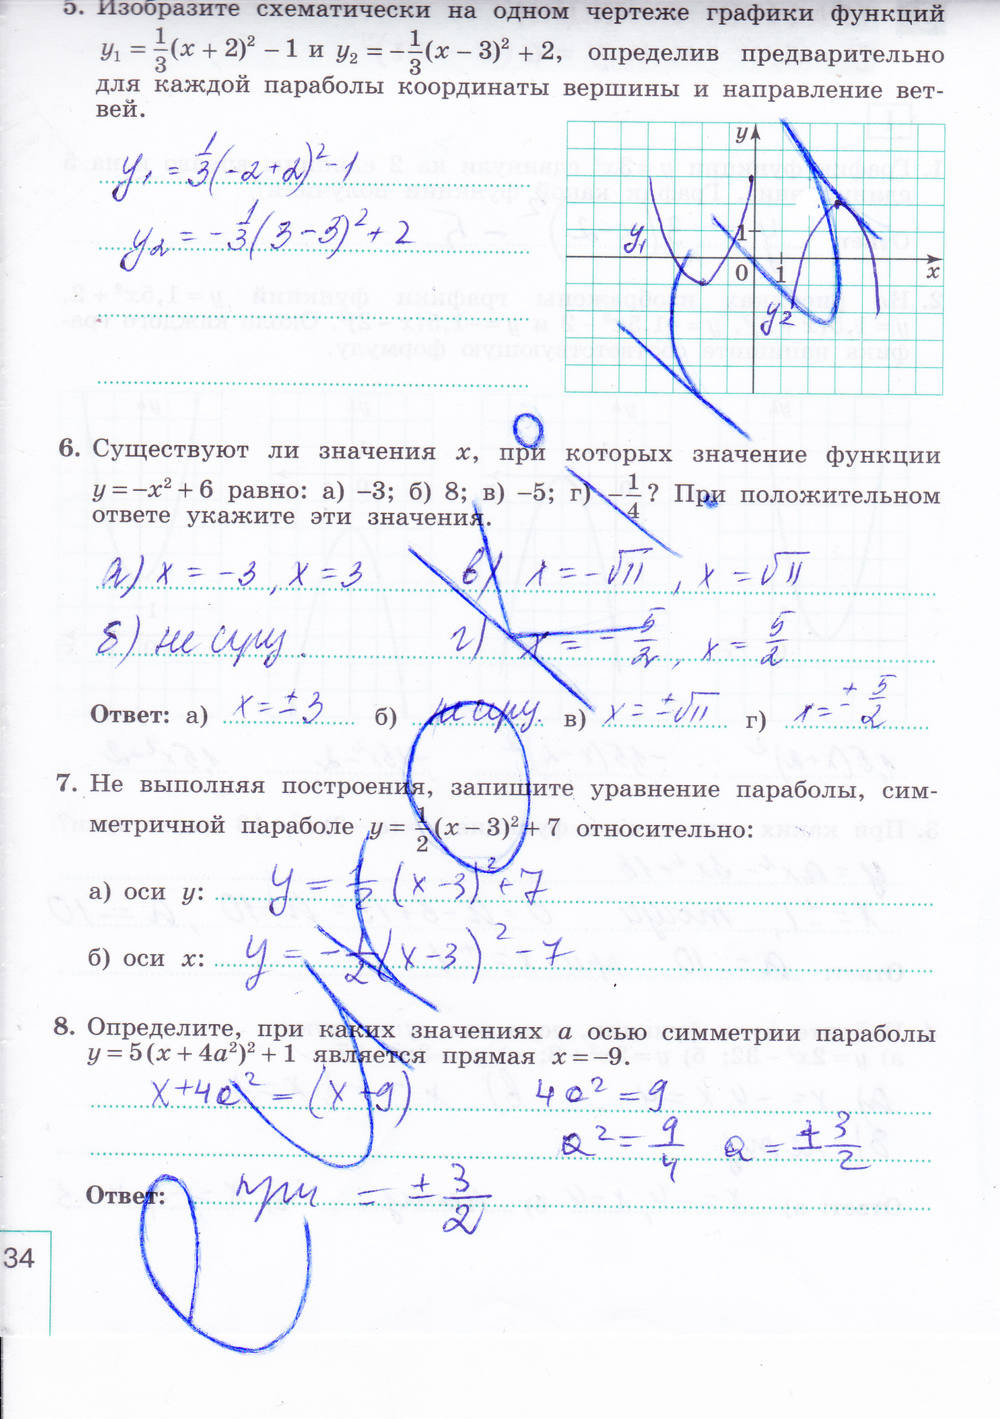 5. Изобразите схематически на одном чертеже графики функций
y₁ = 1/3(x + 2)² − 1 и y₂ = −1/3(x − 3)² + 2, определив предварительно
для каждой параболы координаты вершины и направление вет-
вей.
y₁ = 1/3(-2+2)² -1
y₂ = -1/3(3-3)² + 2
y
y₁
1
0 1 x
y₂
6. Существуют ли значения x, при которых значение функции
y = −x² + 6 равно: а) −3; б) 8; в) −5; г) −1/4? При положительном
ответе укажите эти значения.
а) x = -3, x = 3 в) x = -√11, x = √11
б) не сущ. г) x = -5/2, x = 5/2
Ответ: а) x = ±3 б) не сущ. в) x = ±√11 г) x = ±5/2
7. Не выполняя построения, запишите уравнение параболы, сим-
метричной параболе y = 1/2(x − 3)² + 7 относительно:
а) оси y: y = 1/2(x-3)² + 7
б) оси x: y = -1/2(x-3)² - 7
8. Определите, при каких значениях a осью симметрии параболы
y = 5(x + 4a²)² + 1 является прямая x = −9.
x+4a² = (x+9) 4a² = 9
a² = 9/4 a = ±3/2
Ответ: при = ±3/2
34